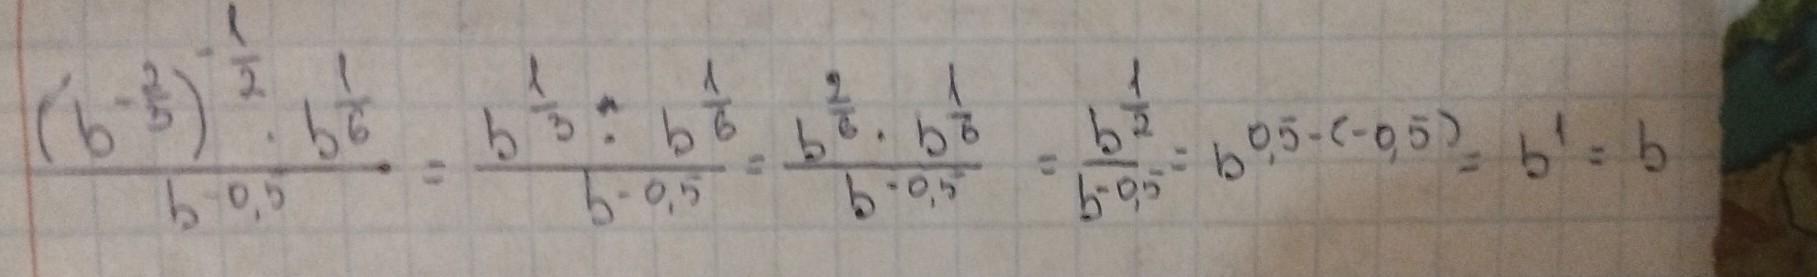 (b^{-\frac{2}{3}})^{-\frac{1}{2}} · b^{\frac{1}{6}} / b^{-0,5} = b^{\frac{1}{3}} · b^{\frac{1}{6}} / b^{-0,5} = b^{\frac{2}{6}} · b^{\frac{1}{6}} / b^{-0,5} = b^{\frac{1}{2}} / b^{-0,5} = b^{0,5-(-0,5)} = b^{1} = b